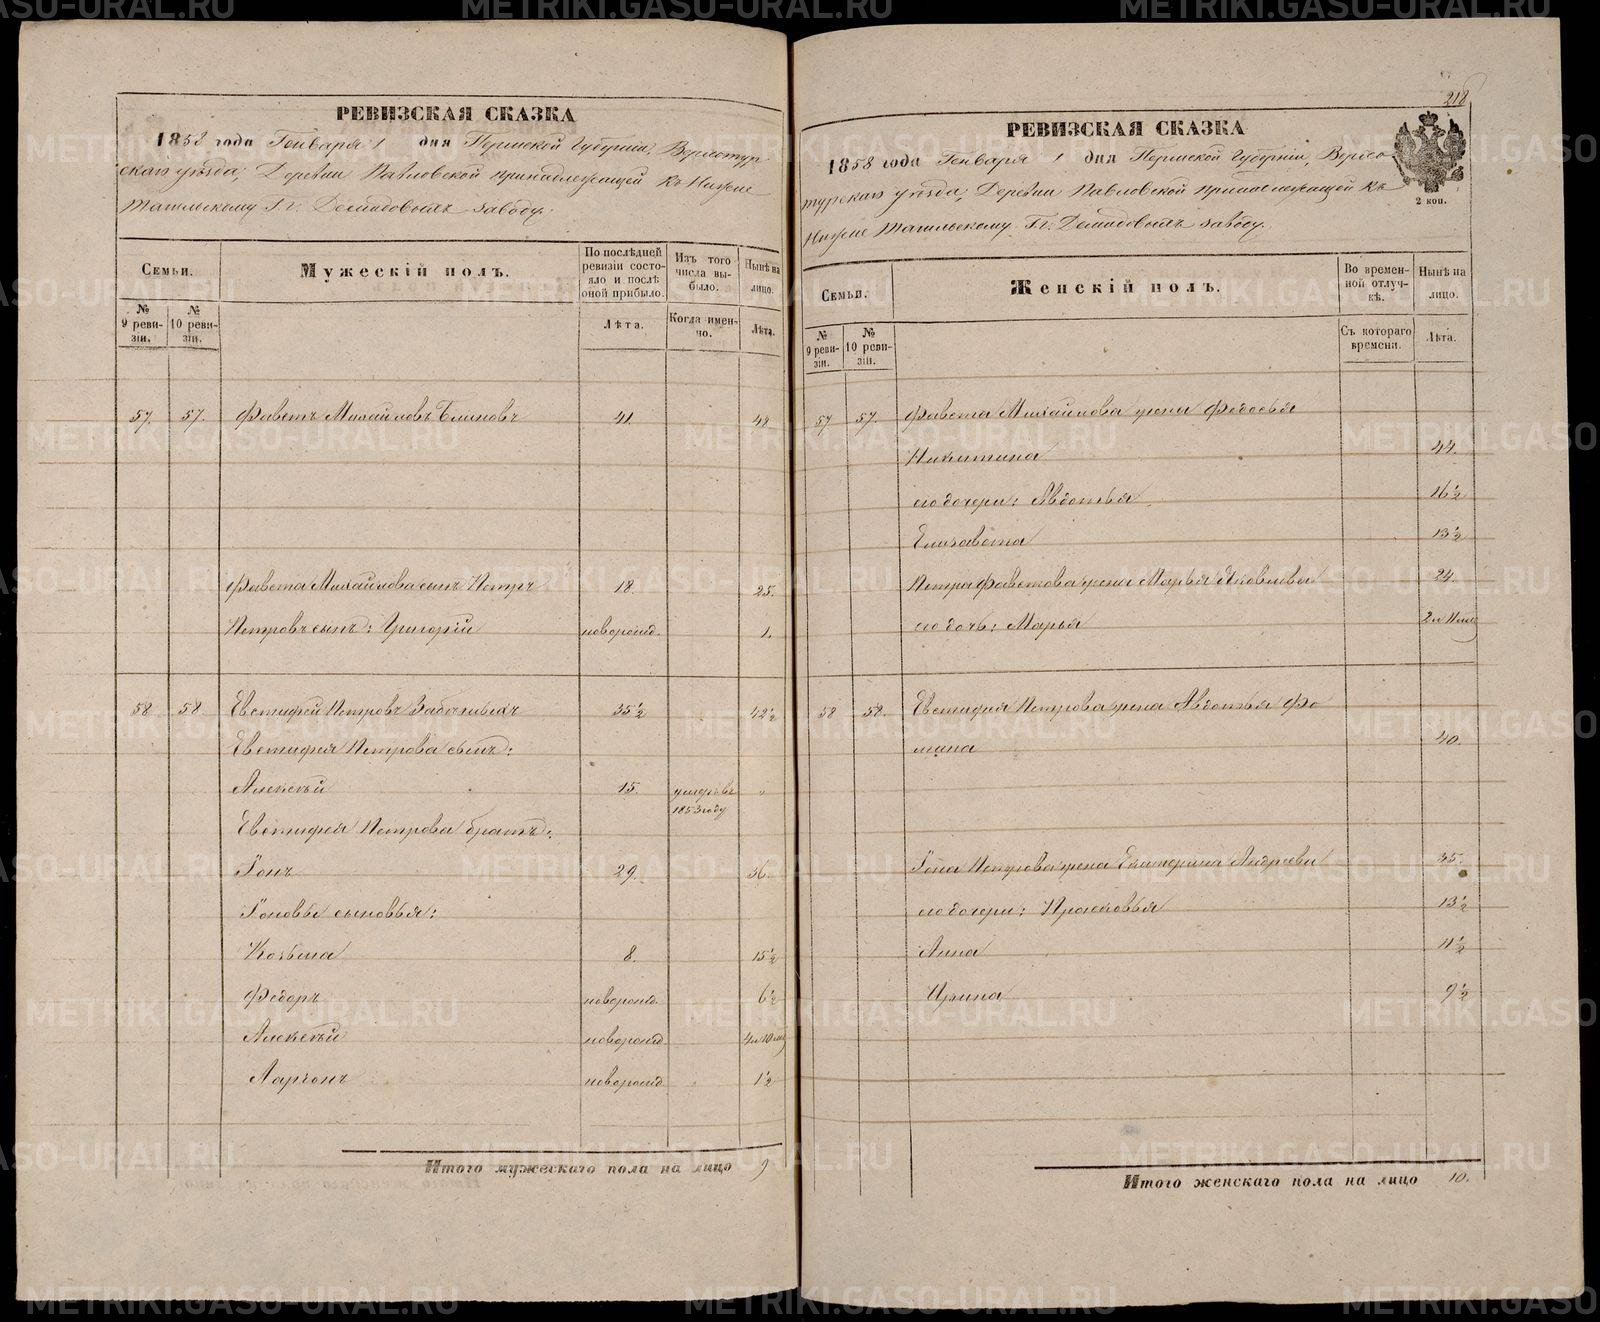 РЕВИЗСКАЯ СКАЗКА
1858 года Генваря 1 дня Пермской Губерніи, Верхотур-
скаго уѣзда, Деревни Павловской принадлежащей къ Нижне
Тагильскому Гг: Демидовыхъ заводу.
Семьи.
Мужескій полъ.
По послѣдней ревизіи состояло и послѣ оной прибыло.
Изъ того числа выбыло.
Нынѣ на лицо.
№ 9 ревизіи.
№ 10 ревизіи.
Лѣта.
Когда именно.
Лѣта.
57. 57. Фавстъ Михайловъ Блиновъ 41. 48
Фавста Михайлова сынъ Петръ 18. 25.
Петровъ сынъ: Григорій новорожд. 1.
58 58. Евстифей Петровъ 35½ 42½
Евстифея Петрова сынъ:
Алексѣй 15. умеръ въ 1853 году "
Евстифея Петрова братъ:
Іонъ 29. 36.
Іоновы сыновья:
Козьма 8. 15½
Федоръ новорожд. 6½
Алексѣй новорожд. 4 л 10 м
Ларіонъ новорожд. 1½
Итого мужескаго пола на лицо 9
218
РЕВИЗСКАЯ СКАЗКА
1858 года Генваря 1 дня Пермской Губерніи, Верхо-
турскаго уѣзда, Деревни Павловской принадлежащей къ
Нижне Тагильскому Гг: Демидовыхъ заводу.
2 коп.
Семьи.
Женскій полъ.
Во временной отлучкѣ.
Нынѣ на лицо.
№ 9 ревизіи.
№ 10 ревизіи.
Съ котораго времени.
Лѣта.
57 57. Фавста Михайлова жена Федосья
Никитина 44.
его дочери: Авдотья 16½
Елизавета 13½
Петра Фавстова жена Марья Яковлева 24.
его дочь: Марья 2 л 11 м
58 58. Евстифея Петрова жена Авдотья Фо
мина 40.
Іона Петрова жена Екатерина Андреева 35.
его дочери: Прасковья 13½
Анна 11½
Ирина 9½
Итого женскаго пола на лицо 10.
METRIKI.GASO-URAL.RU